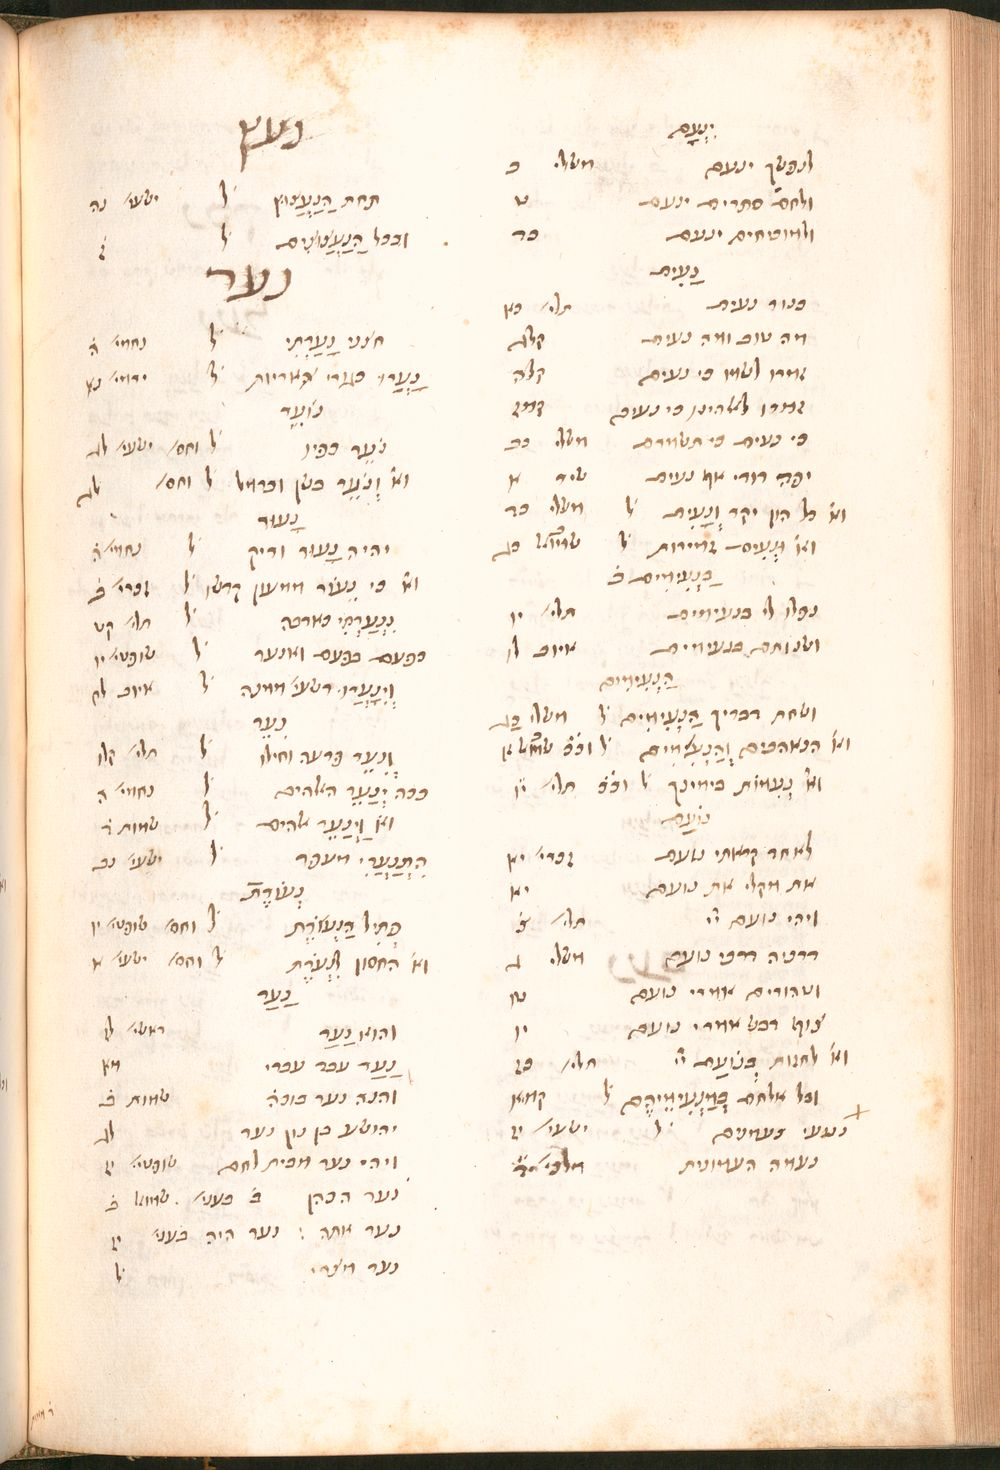 יִנְעָם
לנפשך ינעם משלי ב
ולחם סתרים ינעם ט
ולמוכיחים ינעם כד
נָעִים
כנור נעים תלי׳ פא
מה טוב ומה נעים קלג
זמרו לשמו כי נעים קלה
כי נעים כי תשמרם משלי כב
יפה דודי אף נעים שיר א
וא׳ כל הון יקר וְנָעִים ל׳ משלי כד
וא׳ וּנְעִים זמירות ל׳ שמואל כג
בַּנְּעִימִים ב׳
נפלו לי בנעימים תלי׳ יו
ושנותם בנעימים איוב לו
הַנְּעִימִים
ושתת דבריך הַנְּעִימִים ל׳ משלי כג
וא׳ הנאהבים וְהַנְּעִימִים ל׳ וכפ׳ שמואל א
וא׳ נְעִמוֹת בימינך ל׳ וכפ׳ תלי׳ יו
נוֹעַם
לאחד קראתי נועם זכרי׳ יא
את מקלי את נועם יא
ויהי נועם יי׳ תלי׳ צ
דרכיה דרכי נועם משלי ג
וטהורים אמרי נועם טו
צוף דבש אמרי נועם יו
וא׳ לחזות בְּנוֹעַם יי׳ תלי׳ כז
ובל אלחם בְּמַנְעַמֵּיהֶם ל׳ קמא
נטעי נעמנים ל׳ ישעי׳ יז
נעמה העמונית מלכי׳
נעץ
תחת הַנַּעֲצוּץ ל׳ ישעי׳ נה
ובכל הַנַּעֲצוּצִים ל׳ ז
נער
חצני נָעַרְתִּי ל׳ נחמי׳ ה
נָעֲרוּ כגורי אריות ל׳ ירמי׳ נא
נוֹעֵר
נֹעֵר כפיו ל׳ וחס׳ ישעי׳ לג
וא׳ וְנֹעֵר בשן וכרמל ל׳ וחס׳ לג
נָעוּר
יהיה נָעוּר ורק ל׳ נחמי׳ ה
וא׳ כי נֵעוֹר ממעון קדשו ל׳ זכרי׳ ב
נִנְעַרְתִּי כארבה ל׳ תלי׳ קט
כפעם בפעם ואנער ל׳ שופטי׳ יו
וְיִנָּעֲרוּ רשעי׳ ממנה ל׳ איוב לח
נִעֵר
וְנִעֵר פרעה וחילו ל׳ תלי׳ קלו
ככה יְנַעֵר האלהים ל׳ נחמי׳ ה
וא׳ וַיְנַעֵר אלהים ל׳ שמות
הִתְנַעֲרִי מעפר ל׳ ישעי׳ נב
נְעֹרֶת
פְּתִיל הַנְּעֹרֶת ל׳ וחס׳ שופטי׳ יו
וא׳ החסון לִנְעֹרֶת ל׳ וחס׳ ישעי׳ א
נַעַר
והוא נַעַר ראשי׳ לז
נַעַר עבד עברי מא
והנה נער בוכה שמות ב
יהושע בן נון נער לג
ויהי נער מבית לחם שופטי׳ יז
נער הכהן ב׳ בעני׳ שמואל ב
נער אתה : נער היה בעני׳ יז
נער מצרי ל